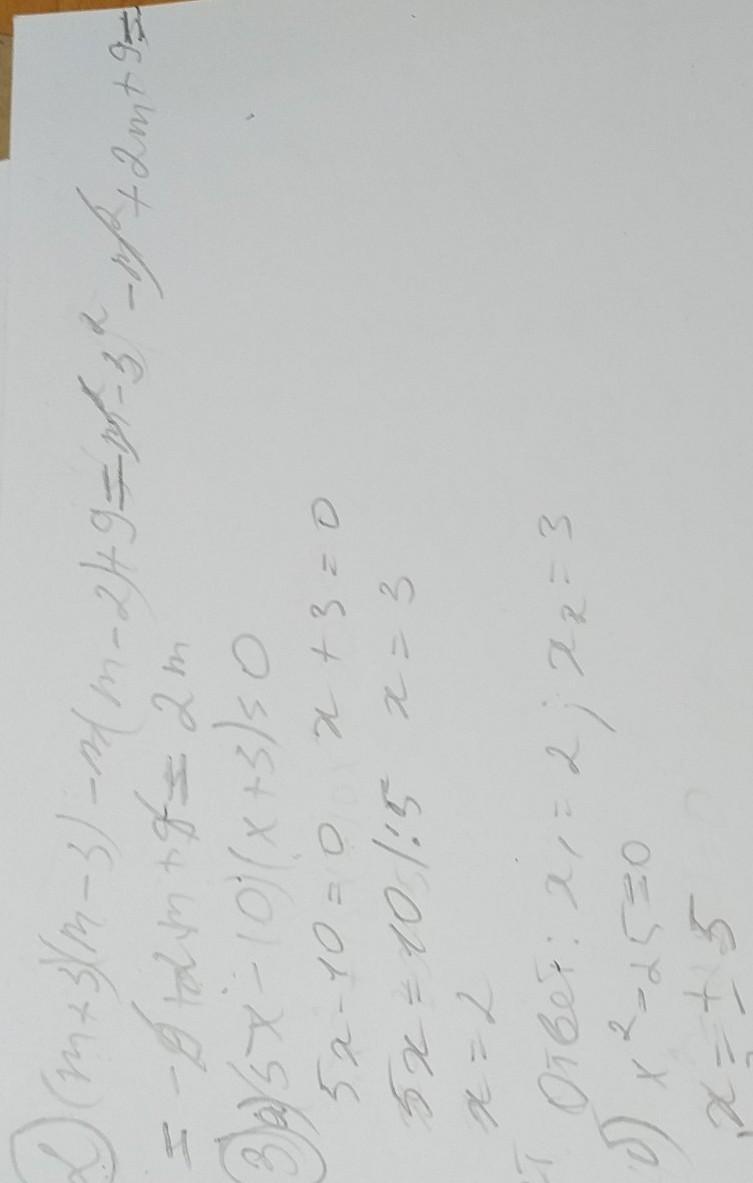 2 (m+3)(m-3)-m(m-2)+9=m²-3²-m²+2m+9=
=-9+2m+9=2m
3 а) (5x-10)(x+3)=0
5x-10=0 x+3=0
5x=10/:5 x=3
x=2
Ответ: x₁=2; x₂=3
б) x²-25=0
x=±5